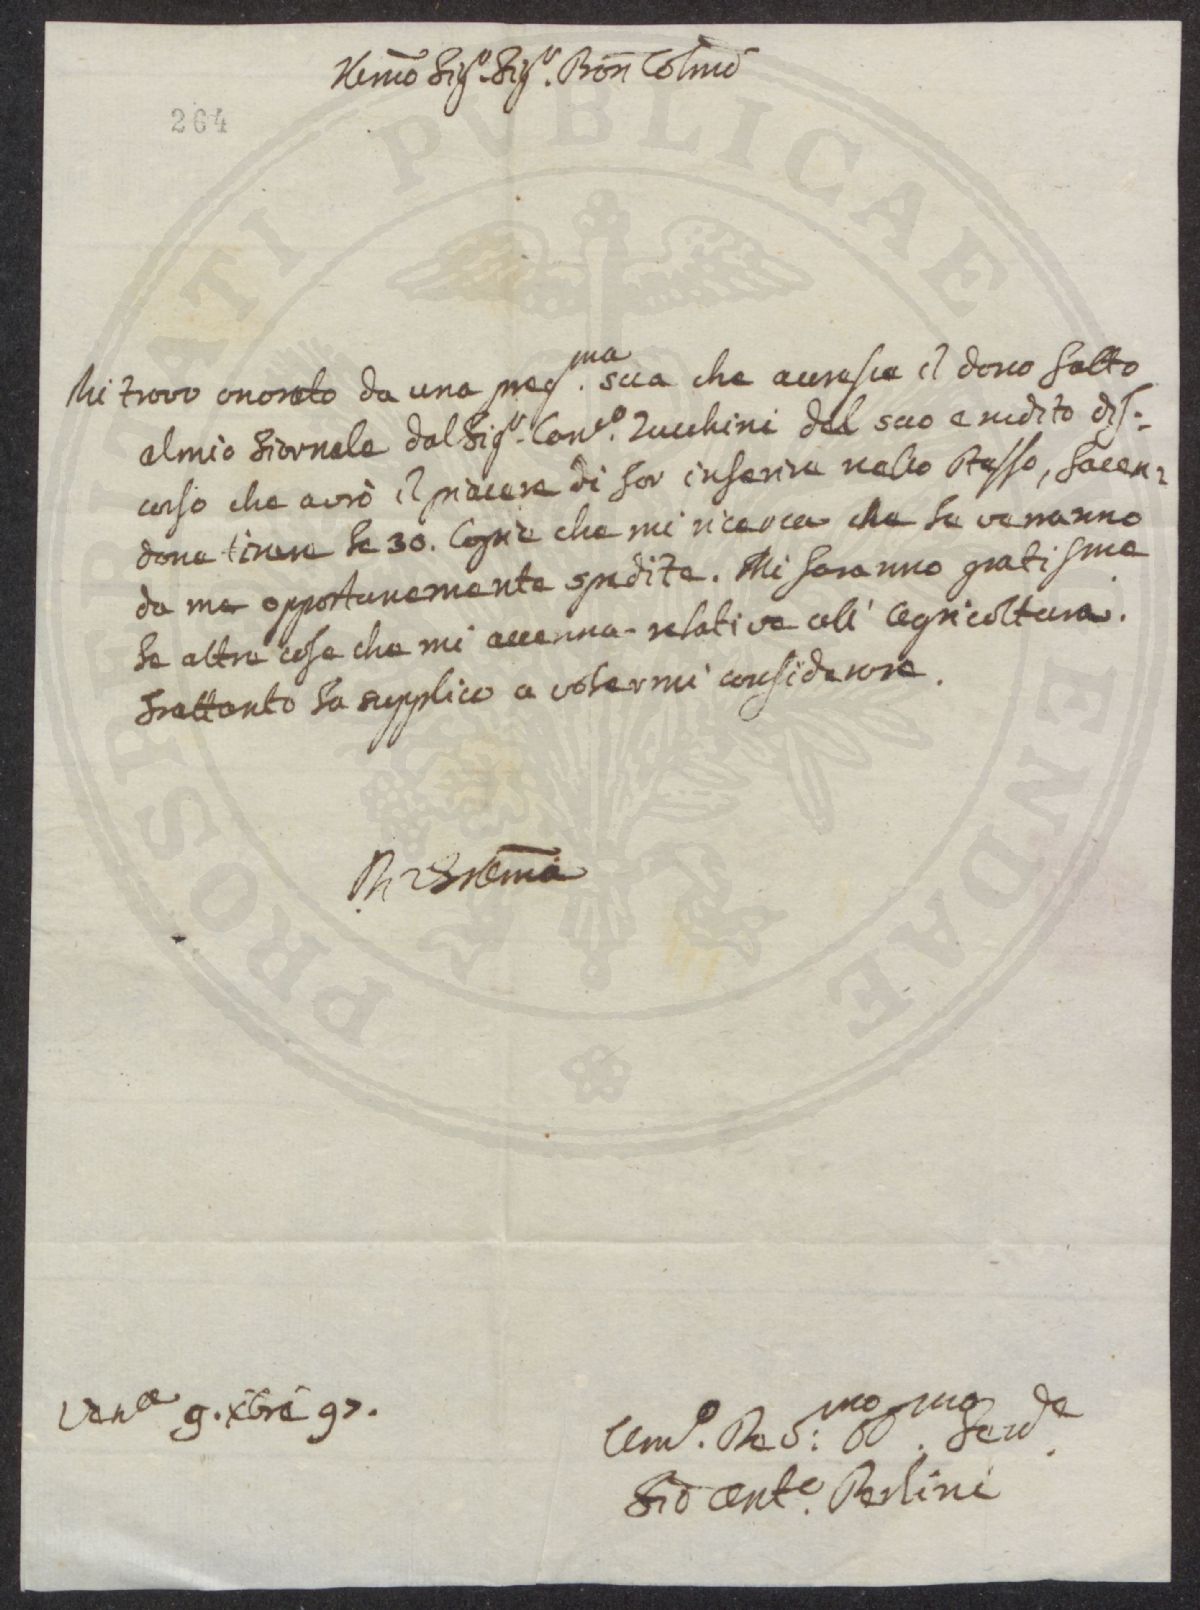 Illmo Sig.r Sig.r Pron Colmo
264
Mi trovo onorato da una preg.ma sua che accresce il dono fatto
al mio Giornale dal Sig.r Can.co Zucchini del suo erudito dis-
corso che avrò il piacere di far inserire nello stesso, facen-
done tirare le 30. Copie che mi ricerca che le verranno
da me opportunemente spedite. Mi saranno gratissme
le altre cose che mi accenna relative all' Agricoltura.
Frattanto la supplico a volermi considerare.
Di VS Illma
Ven.a 9. Xbre 97.
Um.o Dev.mo Obb.mo Serv.de
Gio Ant.o Perlini
PROSPERITATI PVBLICAE AVGENDAE